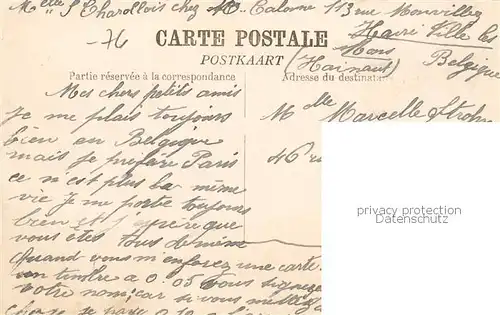 Melle S Charollois chez Mr Calonne 113 rue
-76
Havré Ville les
Mons
(Hainaut) Belgique
CARTE POSTALE
POSTKAART
Partie réservée à la correspondance
Adresse du destinat
Mes chers petits amis
Je me plais toujours
bien en Belgique
mais je préfère Paris
ce n'est plus la même
vie Je me porte toujours
bien et j'espère que
vous êtes tous de même
Quand vous m'enforez une carte
un timbre a 0.05 vous signez
votre nom, car si vous mettez
chose se paye 0.10
Mlle Marcelle
46 r
privacy protection
Datenschutz